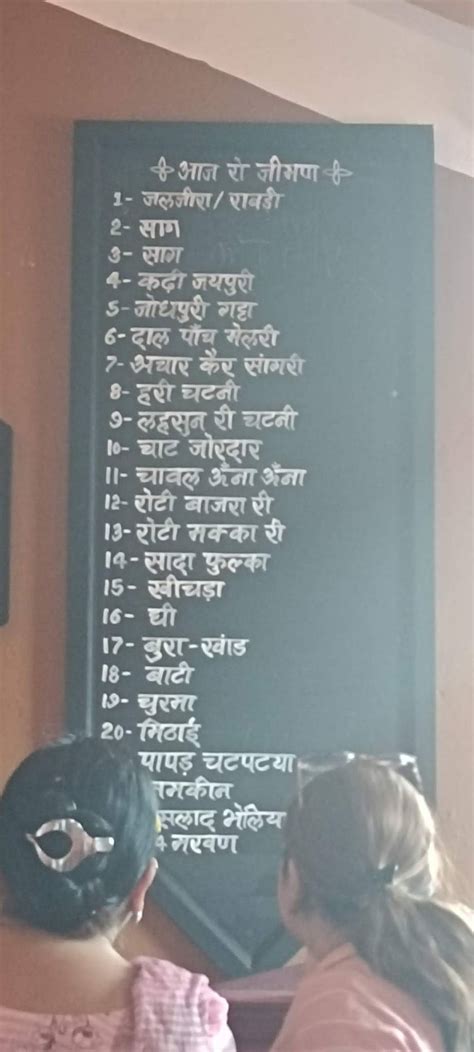 आज रो जीमण
1- जलजीरा/ राबड़ी
2- साग
3- साग
4- कढ़ी जयपुरी
5- जोधपुरी गट्टा
6- दाल पाँच मेलरी
7- अचार कैर सांगरी
8- हरी चटनी
9- लहसुन री चटनी
10- चाट जोरदार
11- चावल अँना अँना
12- रोटी बाजरा री
13- रोटी मक्का री
14- सादा फुल्का
15- खीचड़ा
16- घी
17- बुरा-खांड
18- बाटी
19- चुरमा
20- मिठाई
पापड़ चटपटया
नमकीन
सलाद भेलिय
4 मखण